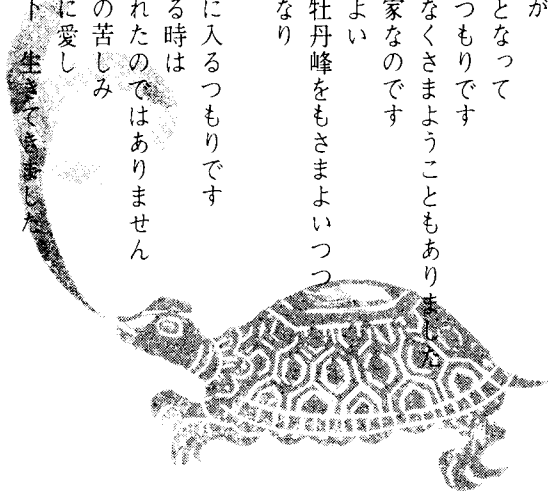 が
となって
つもりです
なくさまようこともありました
家なのです
よい
牡丹峰をもさまよいつつ
なり
に入るつもりです
る時は
れたのではありません
の苦しみ
に愛し
ト 生きてきました